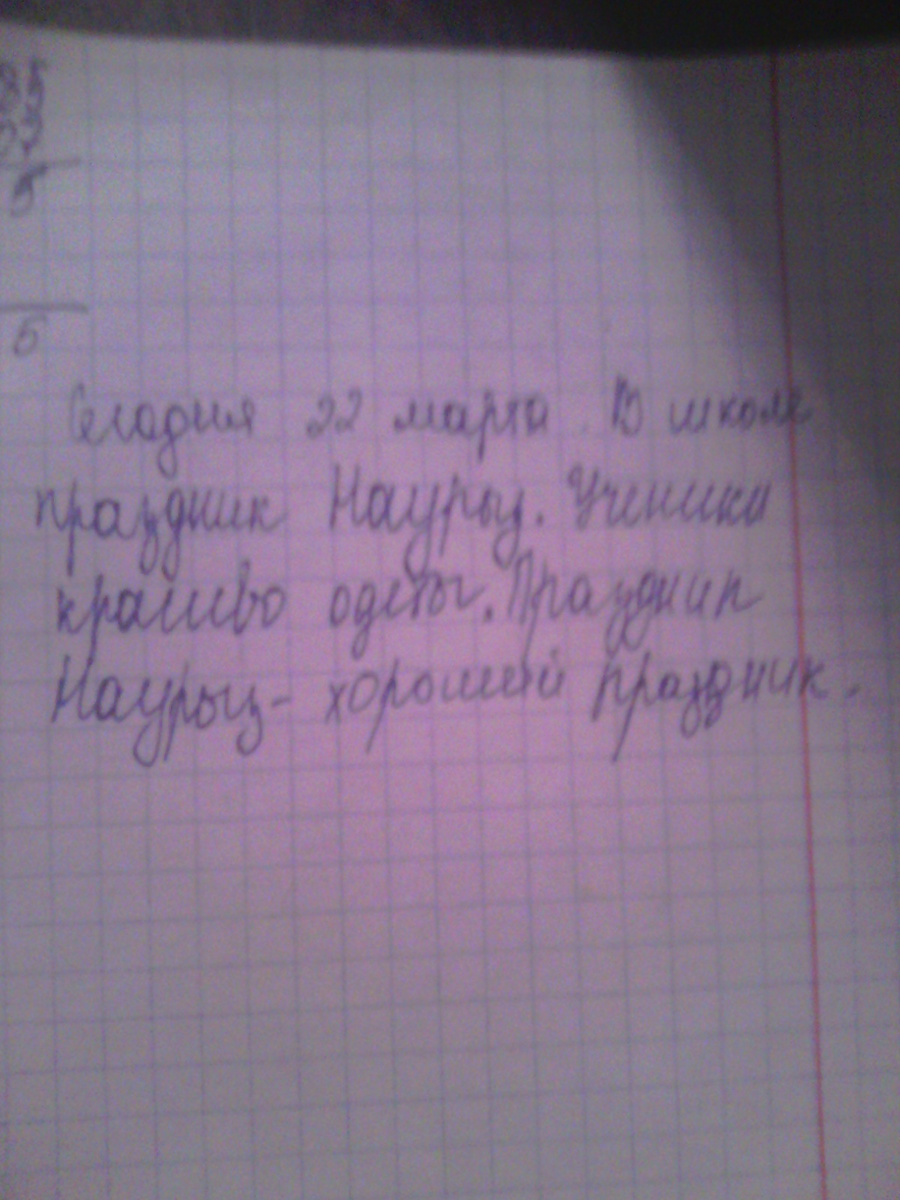 5
5
Сегодня 22 марта. В школе
праздник Наурыз. Ученики
красиво одеты. Праздник
Наурыз- хороший праздник.